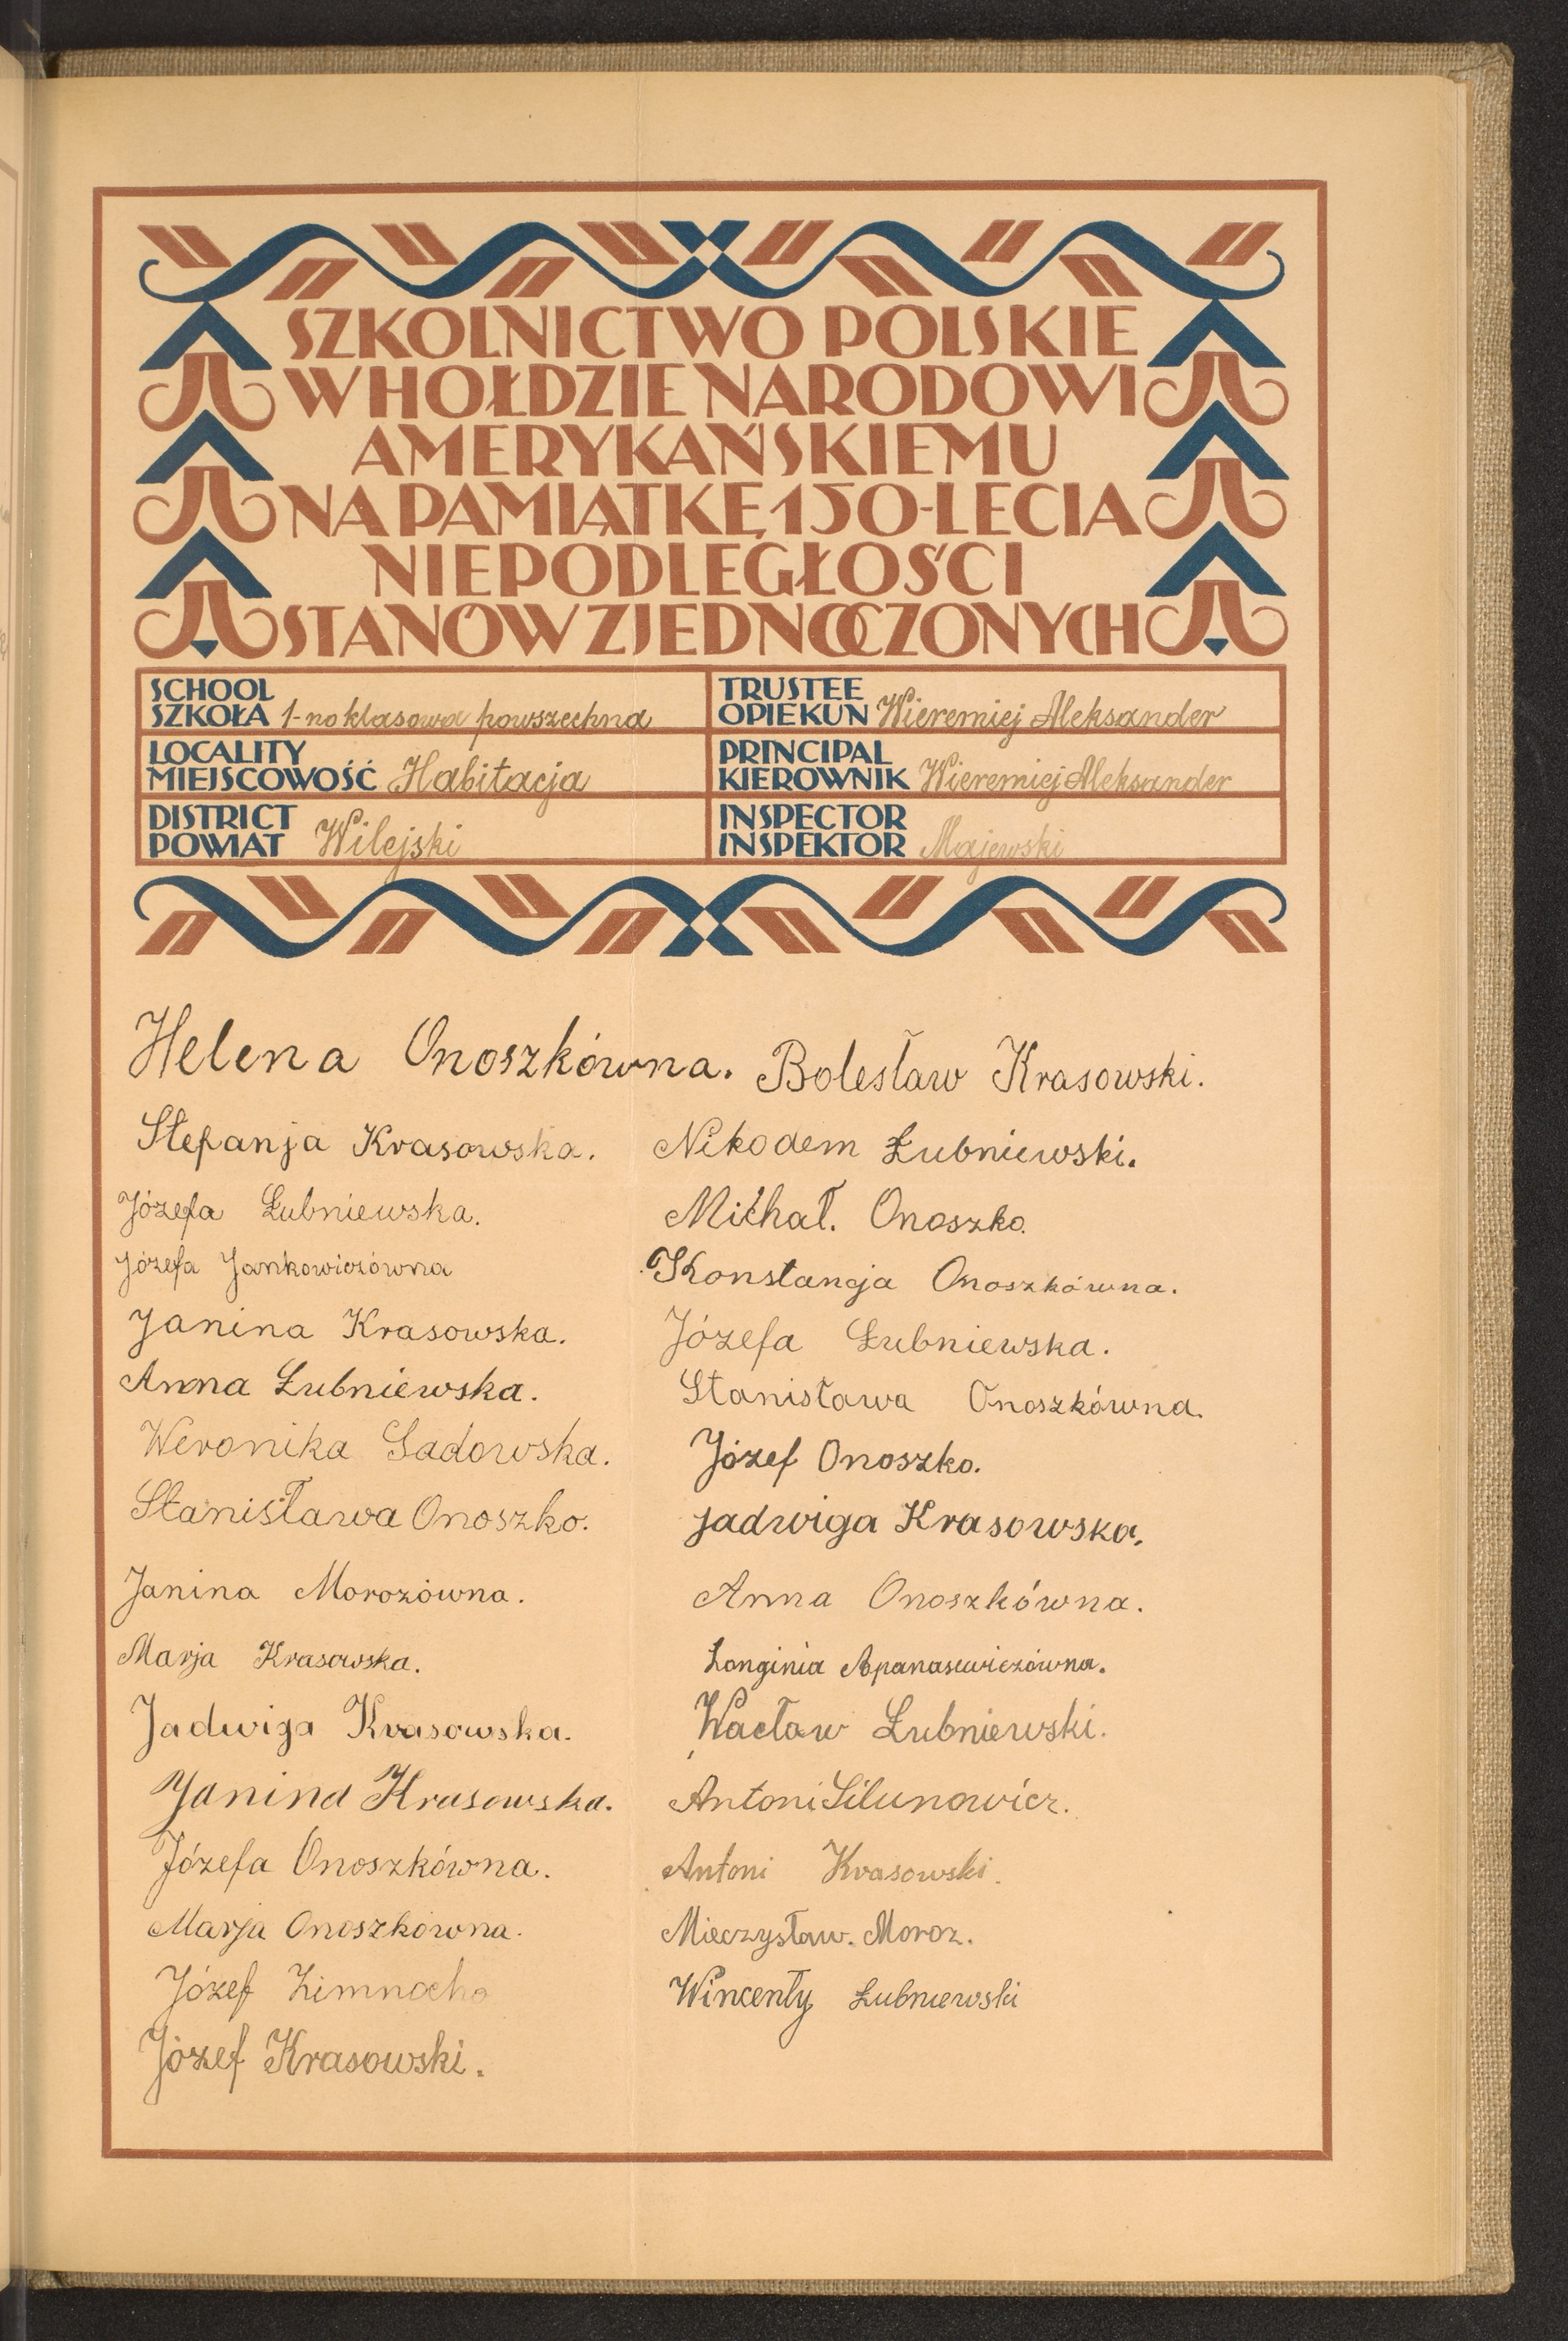 SZKOLNICTWO POLSKIE
W HOŁDZIE NARODOWI
AMERYKAŃSKIEMU
NA PAMIĄTKĘ 150-LECIA
NIEPODLEGŁOŚCI
STANÓW ZJEDNOCZONYCH
SCHOOL
SZKOŁA 1-no klasowa powszechna
TRUSTEE
OPIEKUN Wieremiej Aleksander
LOCALITY
MIEJSCOWOŚĆ Habitacja
PRINCIPAL
KIEROWNIK Wieremiej Aleksander
DISTRICT
POWIAT Wilejski
INSPECTOR
INSPEKTOR Majewski
Helena Onoszkówna.
Stefanja Krasowska.
Józefa Łubniewska.
Józefa Jankowiczówna
Janina Krasowska.
Anna Łubniewska.
Weronika Sadowska.
Stanisława Onoszko.
Janina Morozówna.
Marja Krasowska.
Jadwiga Krasowska.
Janina Krasowska.
Józefa Onoszkówna.
Marja Onoszkówna.
Józef Zimnocho
Józef Krasowski.
Bolesław Krasowski.
Nikodem Łubniewski.
Michał. Onoszko.
Konstancja Onoszkówna.
Józefa Łubniewska.
Stanisława Onoszkówna.
Józef Onoszko.
Jadwiga Krasowska.
Anna Onoszkówna.
Longinia Apanasewiczówna.
Wacław Łubniewski.
Antoni Silunowicz.
Antoni Krasowski.
Mieczysław. Moroz.
Wincenty Łubniewski